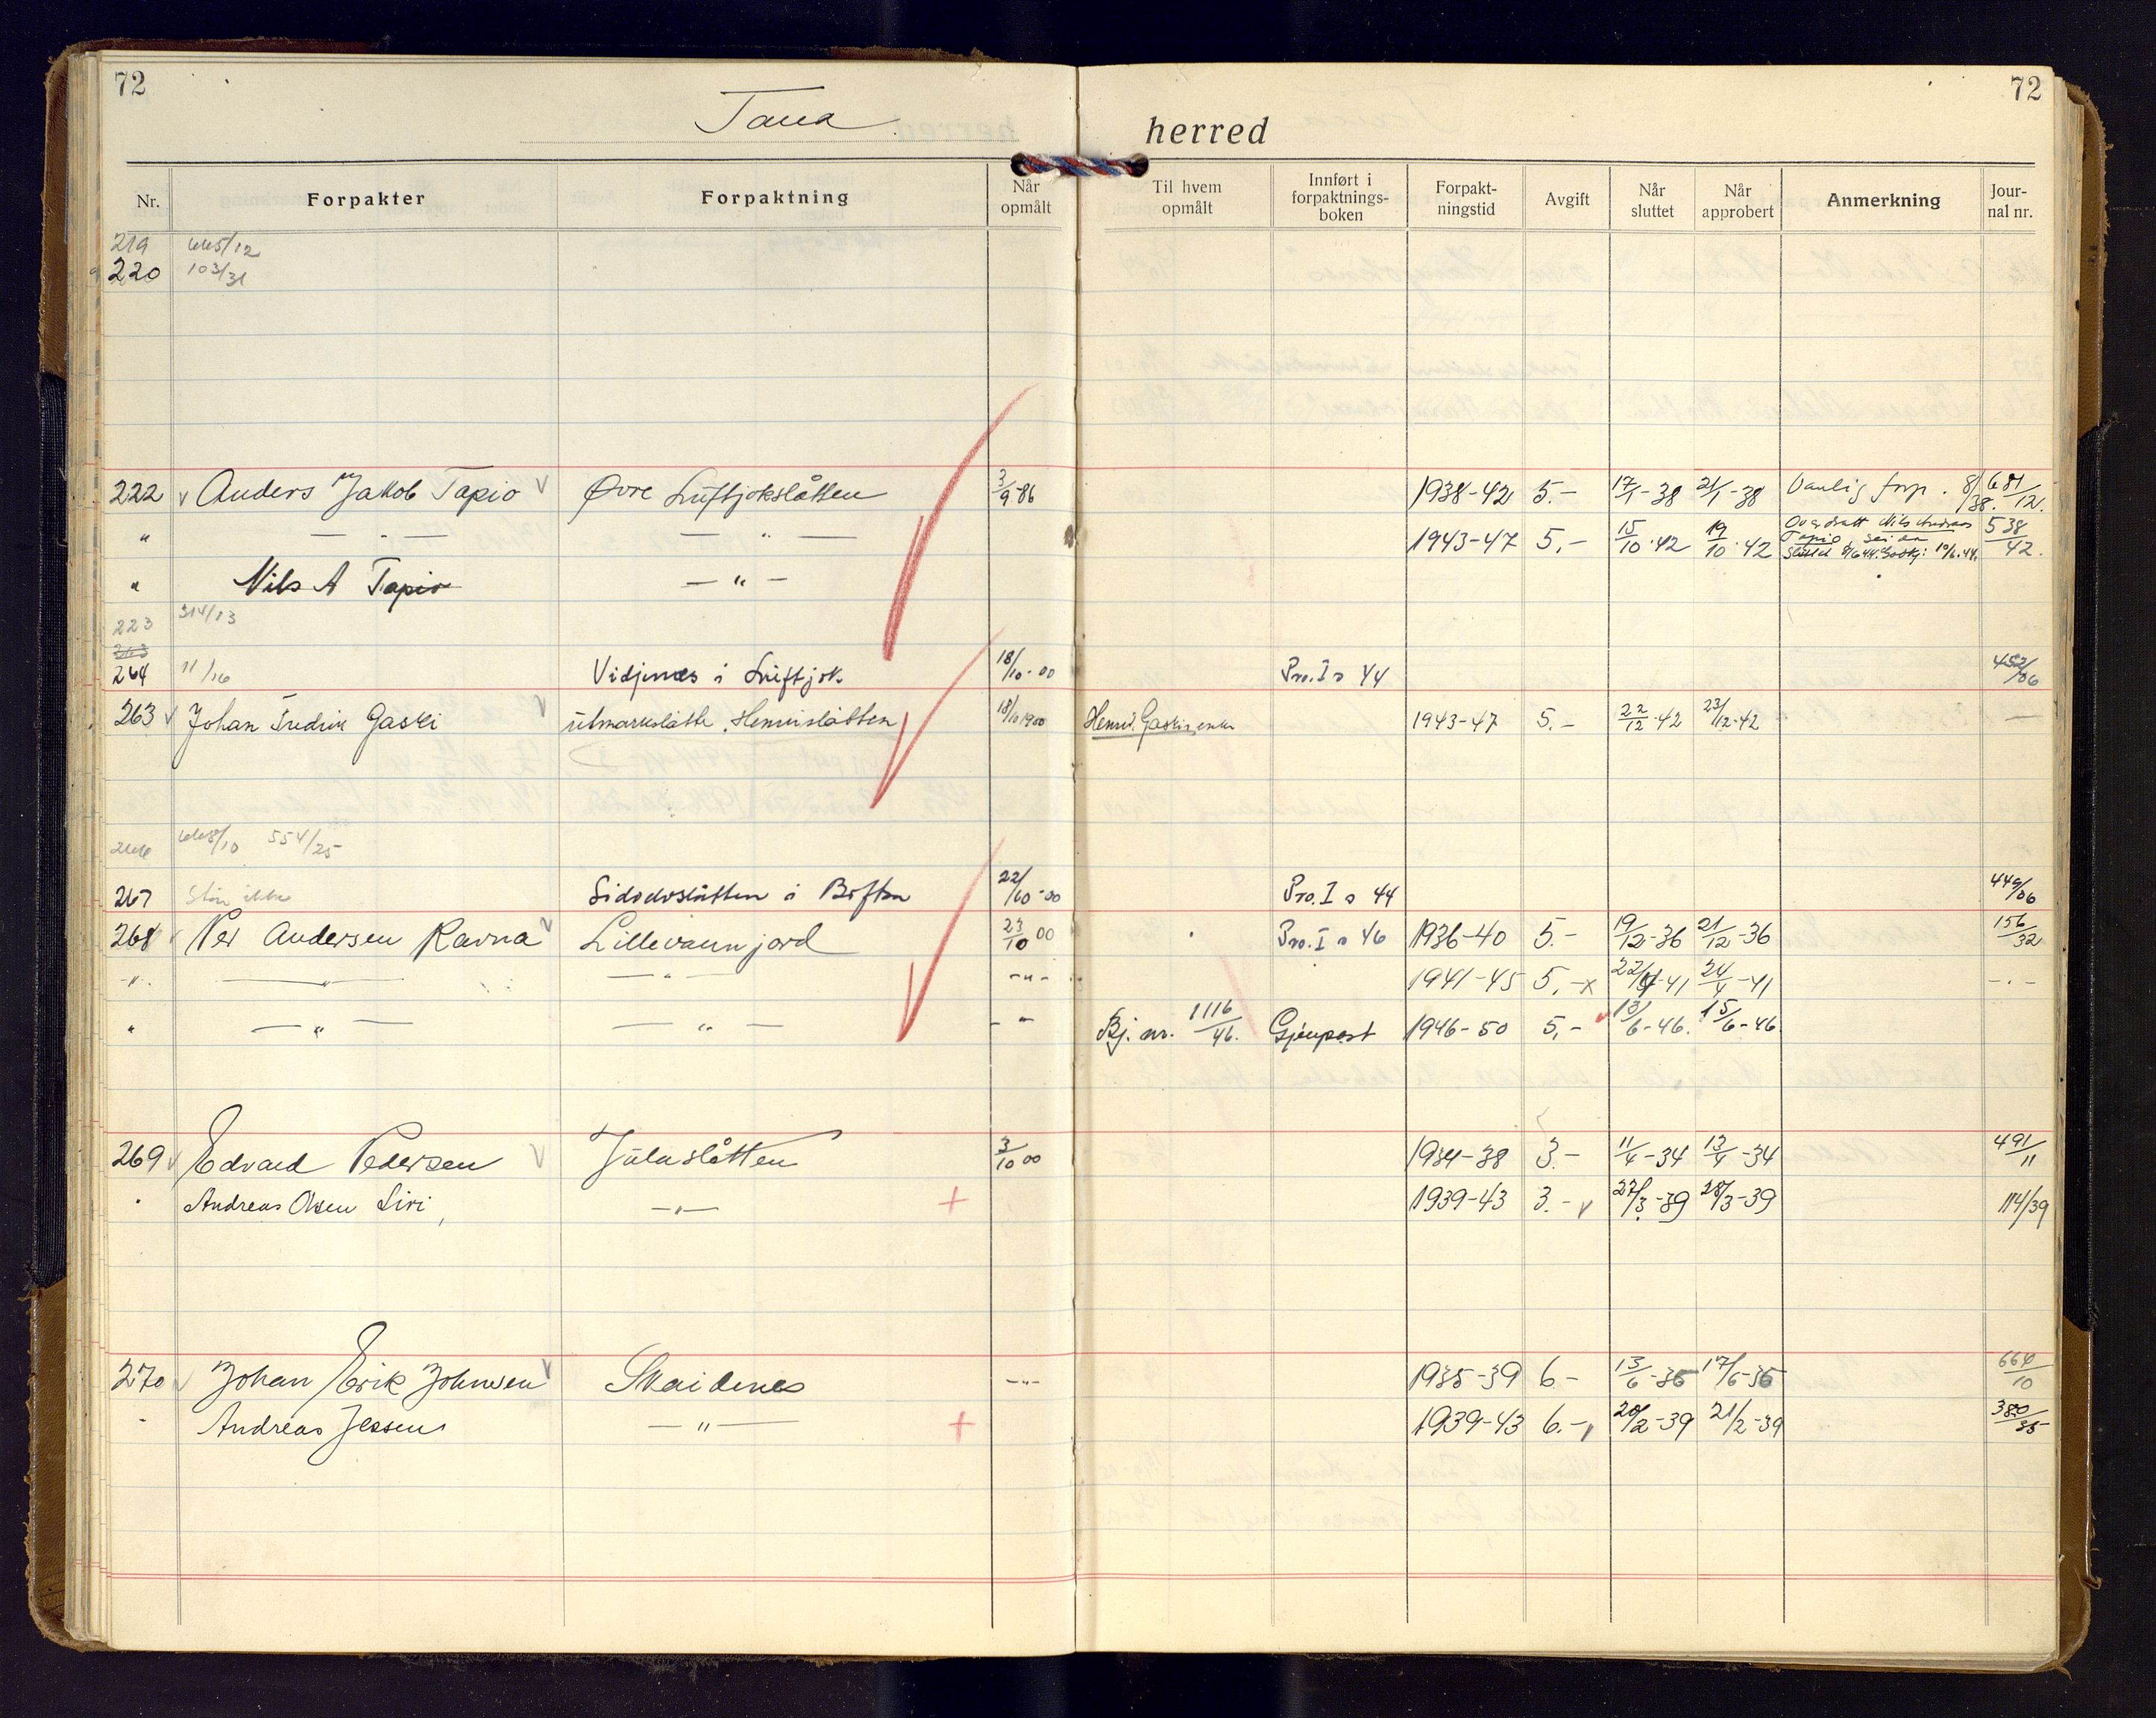 72
72
Tana herred
Nr. Forpakter Forpaktning Når opmålt Til hvem opmålt Innført i forpaktnings-boken Forpakt-ningstid Avgift Når sluttet Når approbert Anmerkning Jour-nal nr.
219 665/12
220 103/31
222 v Anders Jakob Tapio v Øvre Luftjokslåtten 3/9 86 1938-42 5.- 17/1-38 21/1-38 Vanlig forp. 8/38. 681/12.
" — " — — " — 1943-47 5,- 15/10.42 19/10.42 Overdratt Nils Andreas Tapio, 538/42.
" Nils A Tapio — " —
223 314/13
263
264 11/16 Vidjenes i Luftjok. 18/10-00 Pro. I a 44 452/06
263 v Johan Fredrik Gaski v utmarkslåtte, Henrislåtten 18/10 1900 Henrik Gaskis enke 1943-47 5.- 22/12.42 23/12-42 —
266 668/10 554/25
267 Står ikke Sidodoslåtten i Boften 22/10-00 Pro. I a 44 449/06
268 v Per Andersen Ravna v Lillevannjord 23/10 00 Pro. I a 46 1936-40 5.- 19/12-36 21/12-36 156/32
-"- — " — — " — -"- 1941-45 5,-x 22/4-41 24/4-41 -"-
" — " — — " — - " Bj. nr. 1116/46. Gjenpart 1946-50 5,- 13/6-46. 15/6-46
269 v Edvard Pedersen v Julaslåtten 3/10 00 1934-38 3.- 11/4-34 13/4-34 491/11
" Andreas Olsen Siri, — " — + 1939-43 3.- v 27/3-39 28/3-39 114/39
270 v Johan Erik Johnsen v Skaidenes -"- 1935-39 6.- 13/6-35 17/6-35 664/10
" Andreas Jessen — " — + 1939-43 6.- 20/2-39 21/2-39 380/35